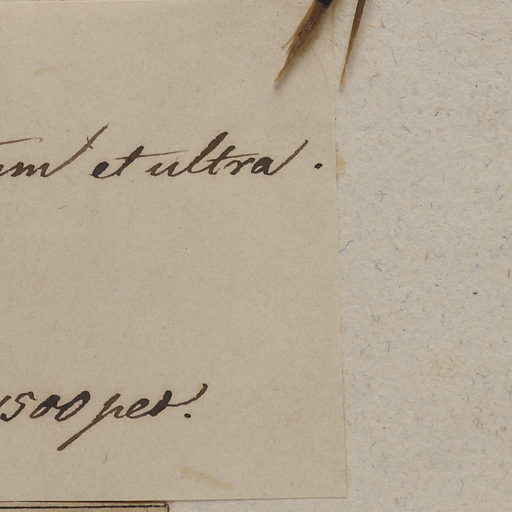 et ultra.
1500 ped.